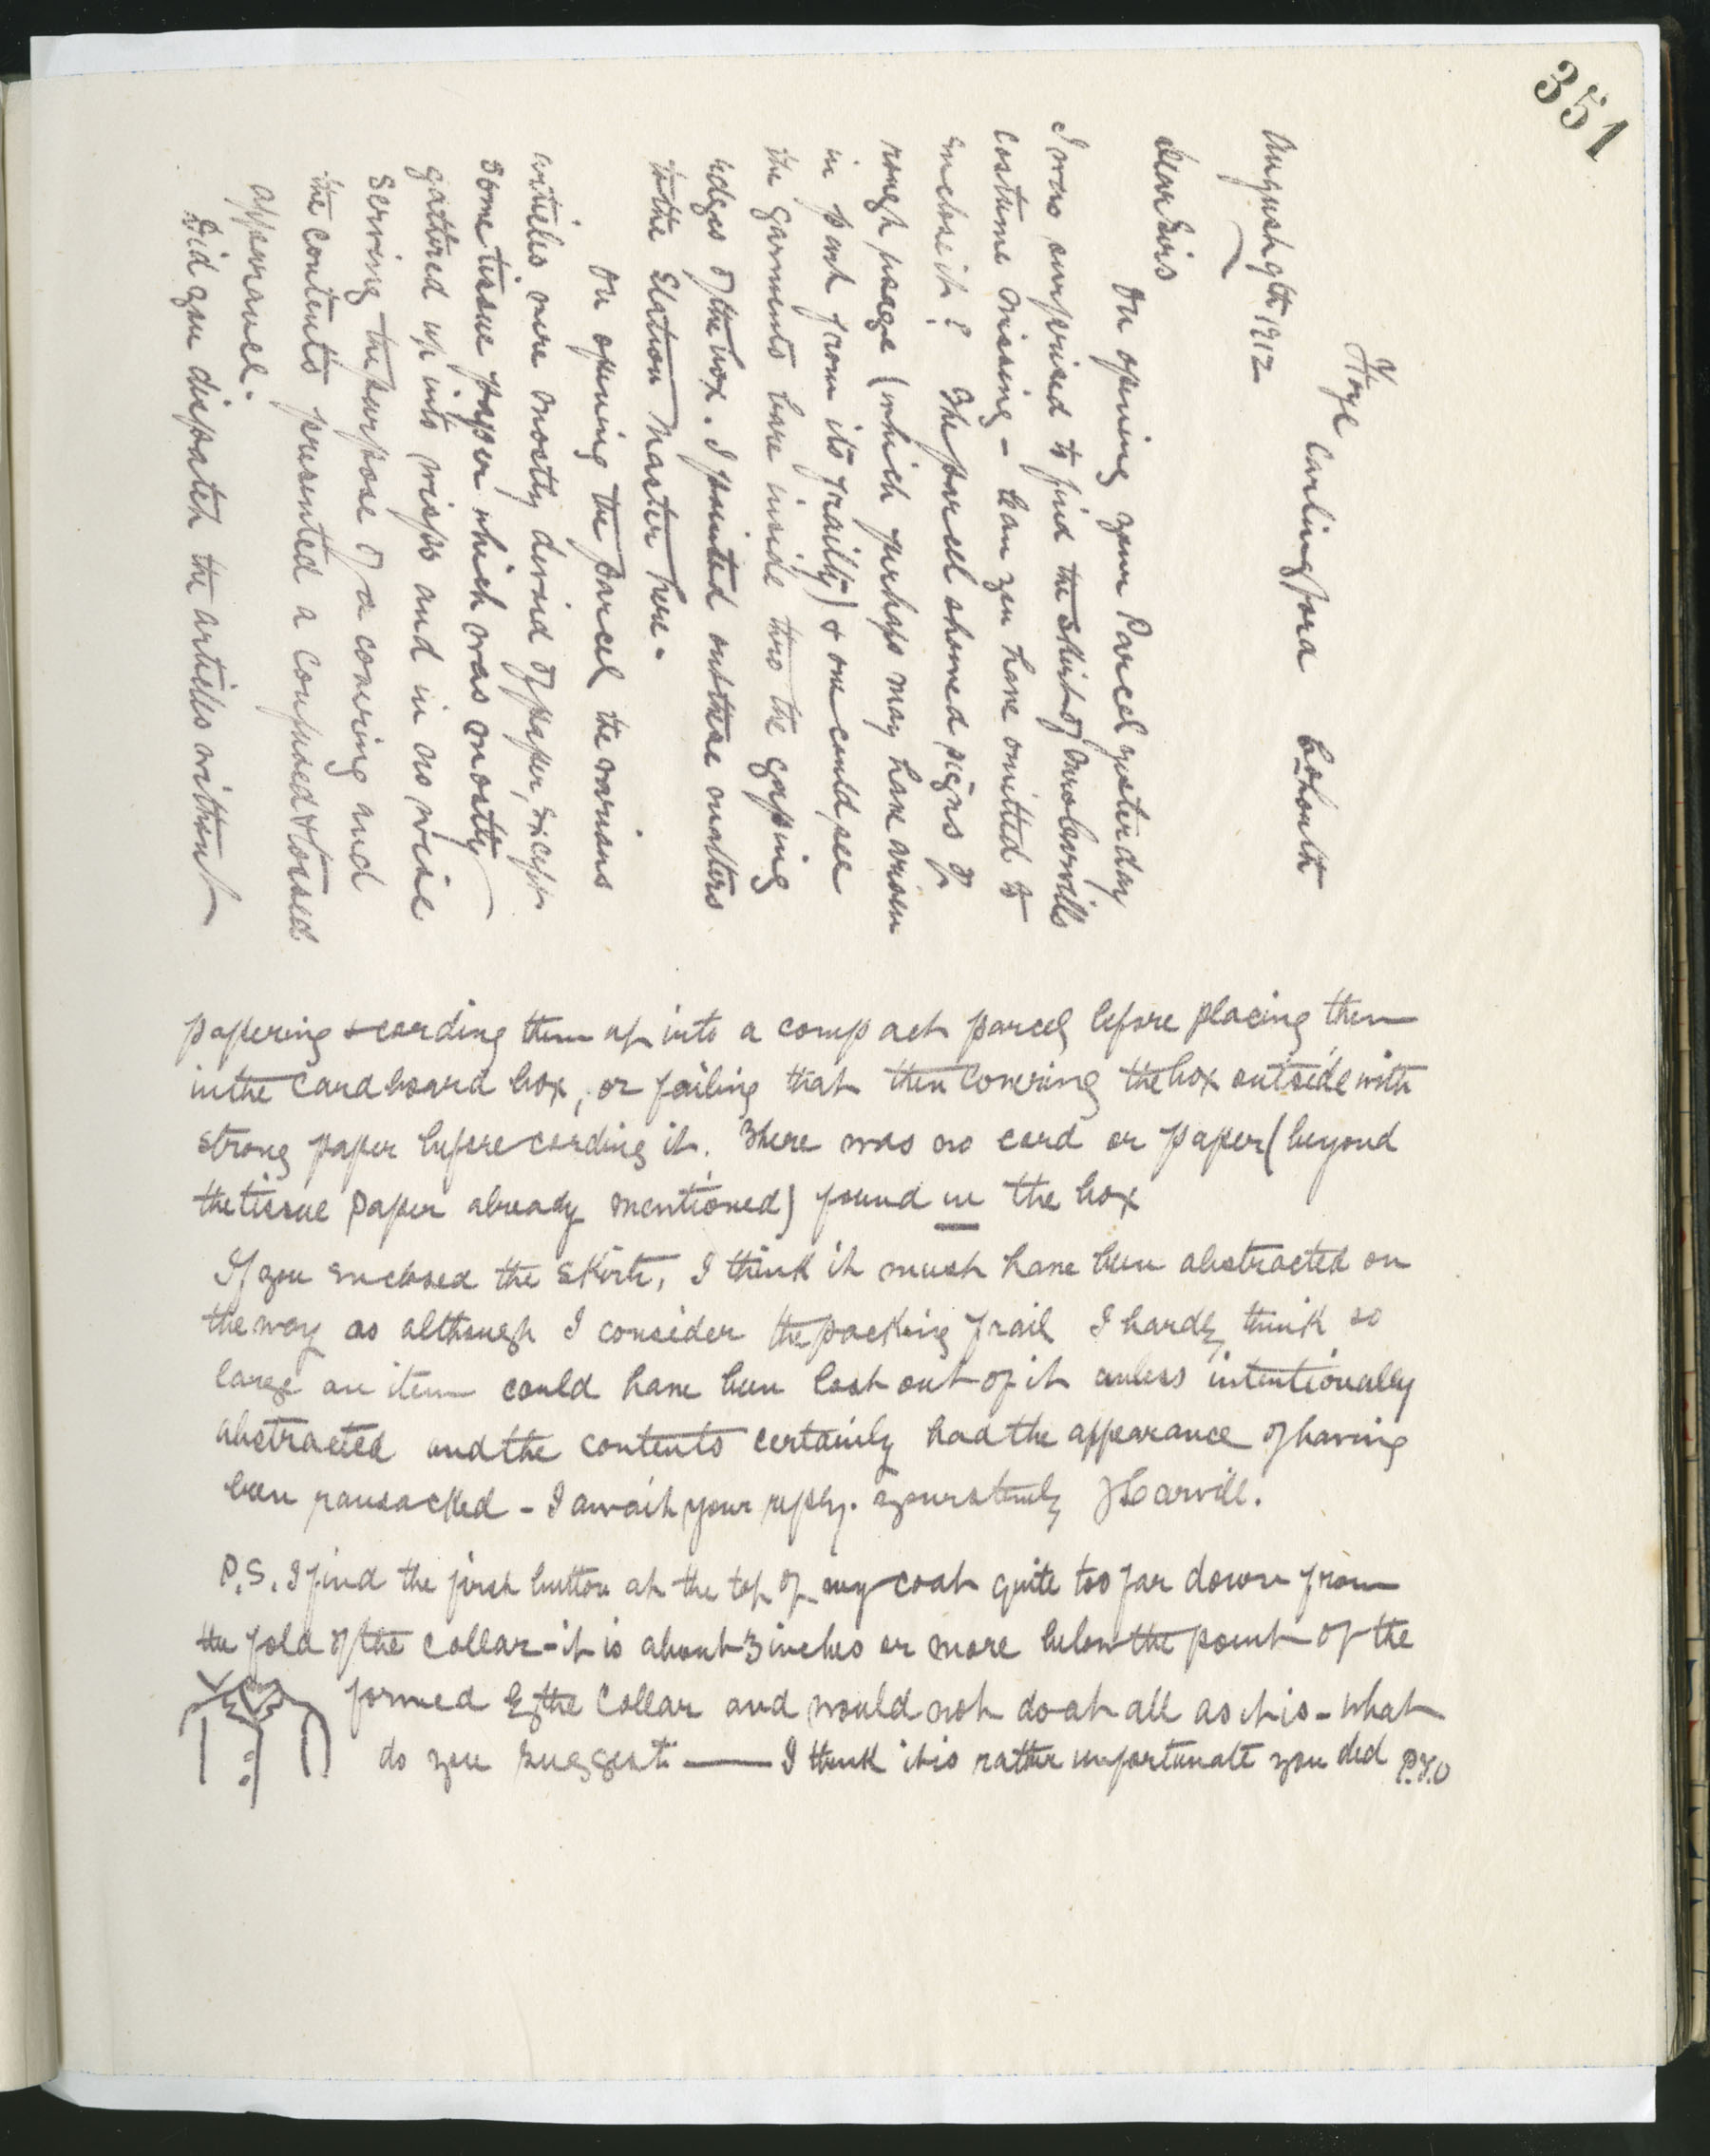 351
Foyle Carlingford Co Louth
August 9th 1912
Dear Sirs
On opening your Parcel yesterday
I was surprised to find the skirt of Mrs Carvills
costume missing - Can you have omitted to
enclose it? The parcel showed signs of
rough usage (which perhaps may have arisen
in part from its frailty) & one could see
the garments bare inside thro the gaping
edges of the box. I pointed out these matters
to the Station Master here.
On opening the parcel the various
articles were mostly devoid of paper, except
some tissue paper which was mostly
gathered up into wisps and in no wise
serving the purpose of a covering and
the contents presented a confused & tossed
appearance.
Did you dispatch the articles without
papering & cording them up into a compact parcel before placing them
in the Cardboard box, or failing that then covering the box outside with
strong paper before cording it. There was no cord or paper (beyond
the tissue paper already mentioned) found in the box
If you enclosed the skirt, I think it must have been abstracted on
the way as although I consider the packing frail I hardly think so
large an item could have been lost out of it unless intentionally
abstracted and the contents certainly had the appearance of having
been ransacked - I await your reply. Yours truly JL Carvill.
P.S. I find the first button at the top of my coat quite too far down from
the fold of the collar - it is about 3 inches or more below the point of the
V formed by the Collar and would not do at all as it is - what
do you suggest — I think it is rather unfortunate you did P.T.O